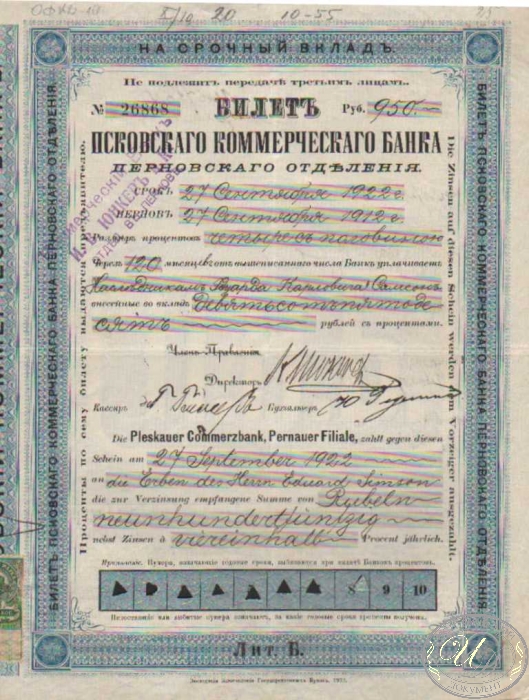 10-55
НА СРОЧНЫЙ ВКЛАДЪ.
Не подлежитъ передачѣ третьимъ лицамъ.
№ 26868 БИЛЕТЪ Руб. 950.
ПСКОВСКАГО КОММЕРЧЕСКАГО БАНКА
ПЕРНОВСКАГО ОТДѢЛЕНІЯ.
СРОКЪ 27 Сентября 1922 г.
ПЕРНОВЪ 27 Сентября 1912 г.
Размѣръ процентовъ четыре съ половиною
Чрезъ 120 мѣсяцевъ отъ вышеписаннаго числа Банкъ уплачиваетъ
Наслѣдникамъ Эдуарда Карловича Симсонъ
внесенныя во вкладъ Девятьсотъ пятьде
сятъ рублей съ процентами.
Членъ Правленія
Директоръ
Кассиръ Бухгалтеръ
Die Pleskauer Commerzbank, Pernauer Filiale, zahlt gegen diesen
Schein am 27 September 1922
an die Erben des Herrn Eduard Simson
die zur Verzinsung empfangene Summe von Rubeln
neunhundertfünfzig
nebst Zinsen à viereinhalb Procent jährlich.
Примѣчаніе. Цифры, означающія годовые сроки, выбиваются при выдачѣ Банкомъ процентовъ.
8 9 10
Недостающія или пробитыя цифры означаютъ, за какіе годовые сроки проценты получены.
Лит. Б.
Экспедиція Заготовленія Государственныхъ Бумагъ.
БИЛЕТЪ ПСКОВСКАГО КОММЕРЧЕСКАГО БАНКА ПЕРНОВСКАГО ОТДѢЛЕНІЯ.
Проценты по сему билету выдаются предъявителю.
Die Zinsen auf diesen Schein werden dem Vorzeiger ausgezahlt.
БИЛЕТЪ ПСКОВСКАГО КОММЕРЧЕСКАГО БАНКА ПЕРНОВСКАГО ОТДѢЛЕНІЯ.
И
ДОКУМЕНТ